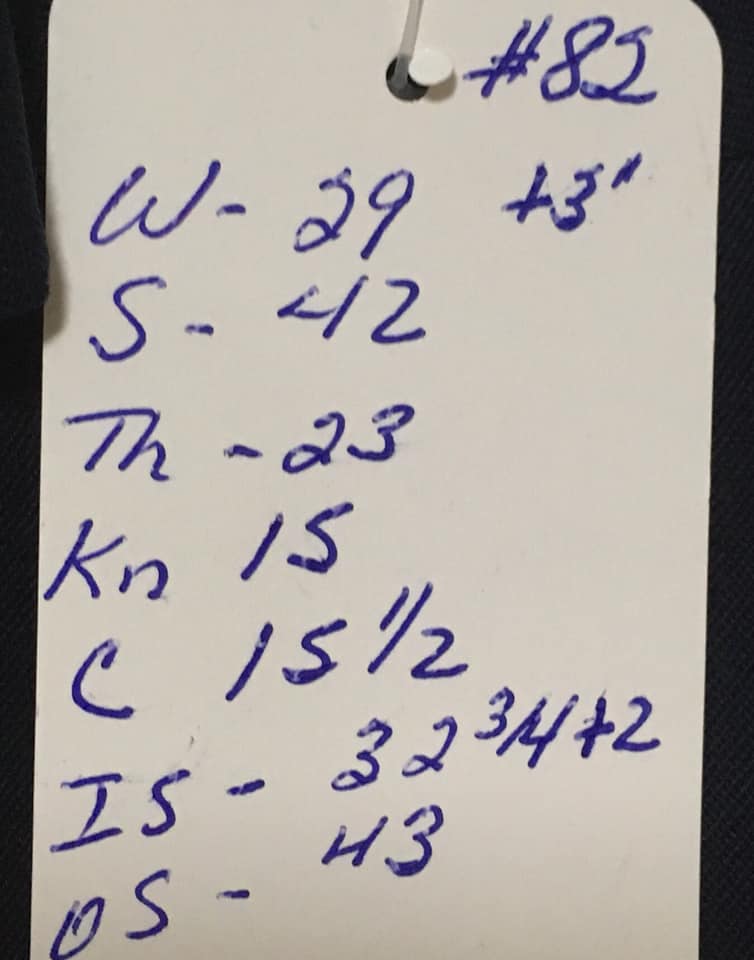 #82
W- 29 +3"
S- 42
Th -23
Kn 15
C 15 1/2
IS- 32 3/4 +2
OS- 43